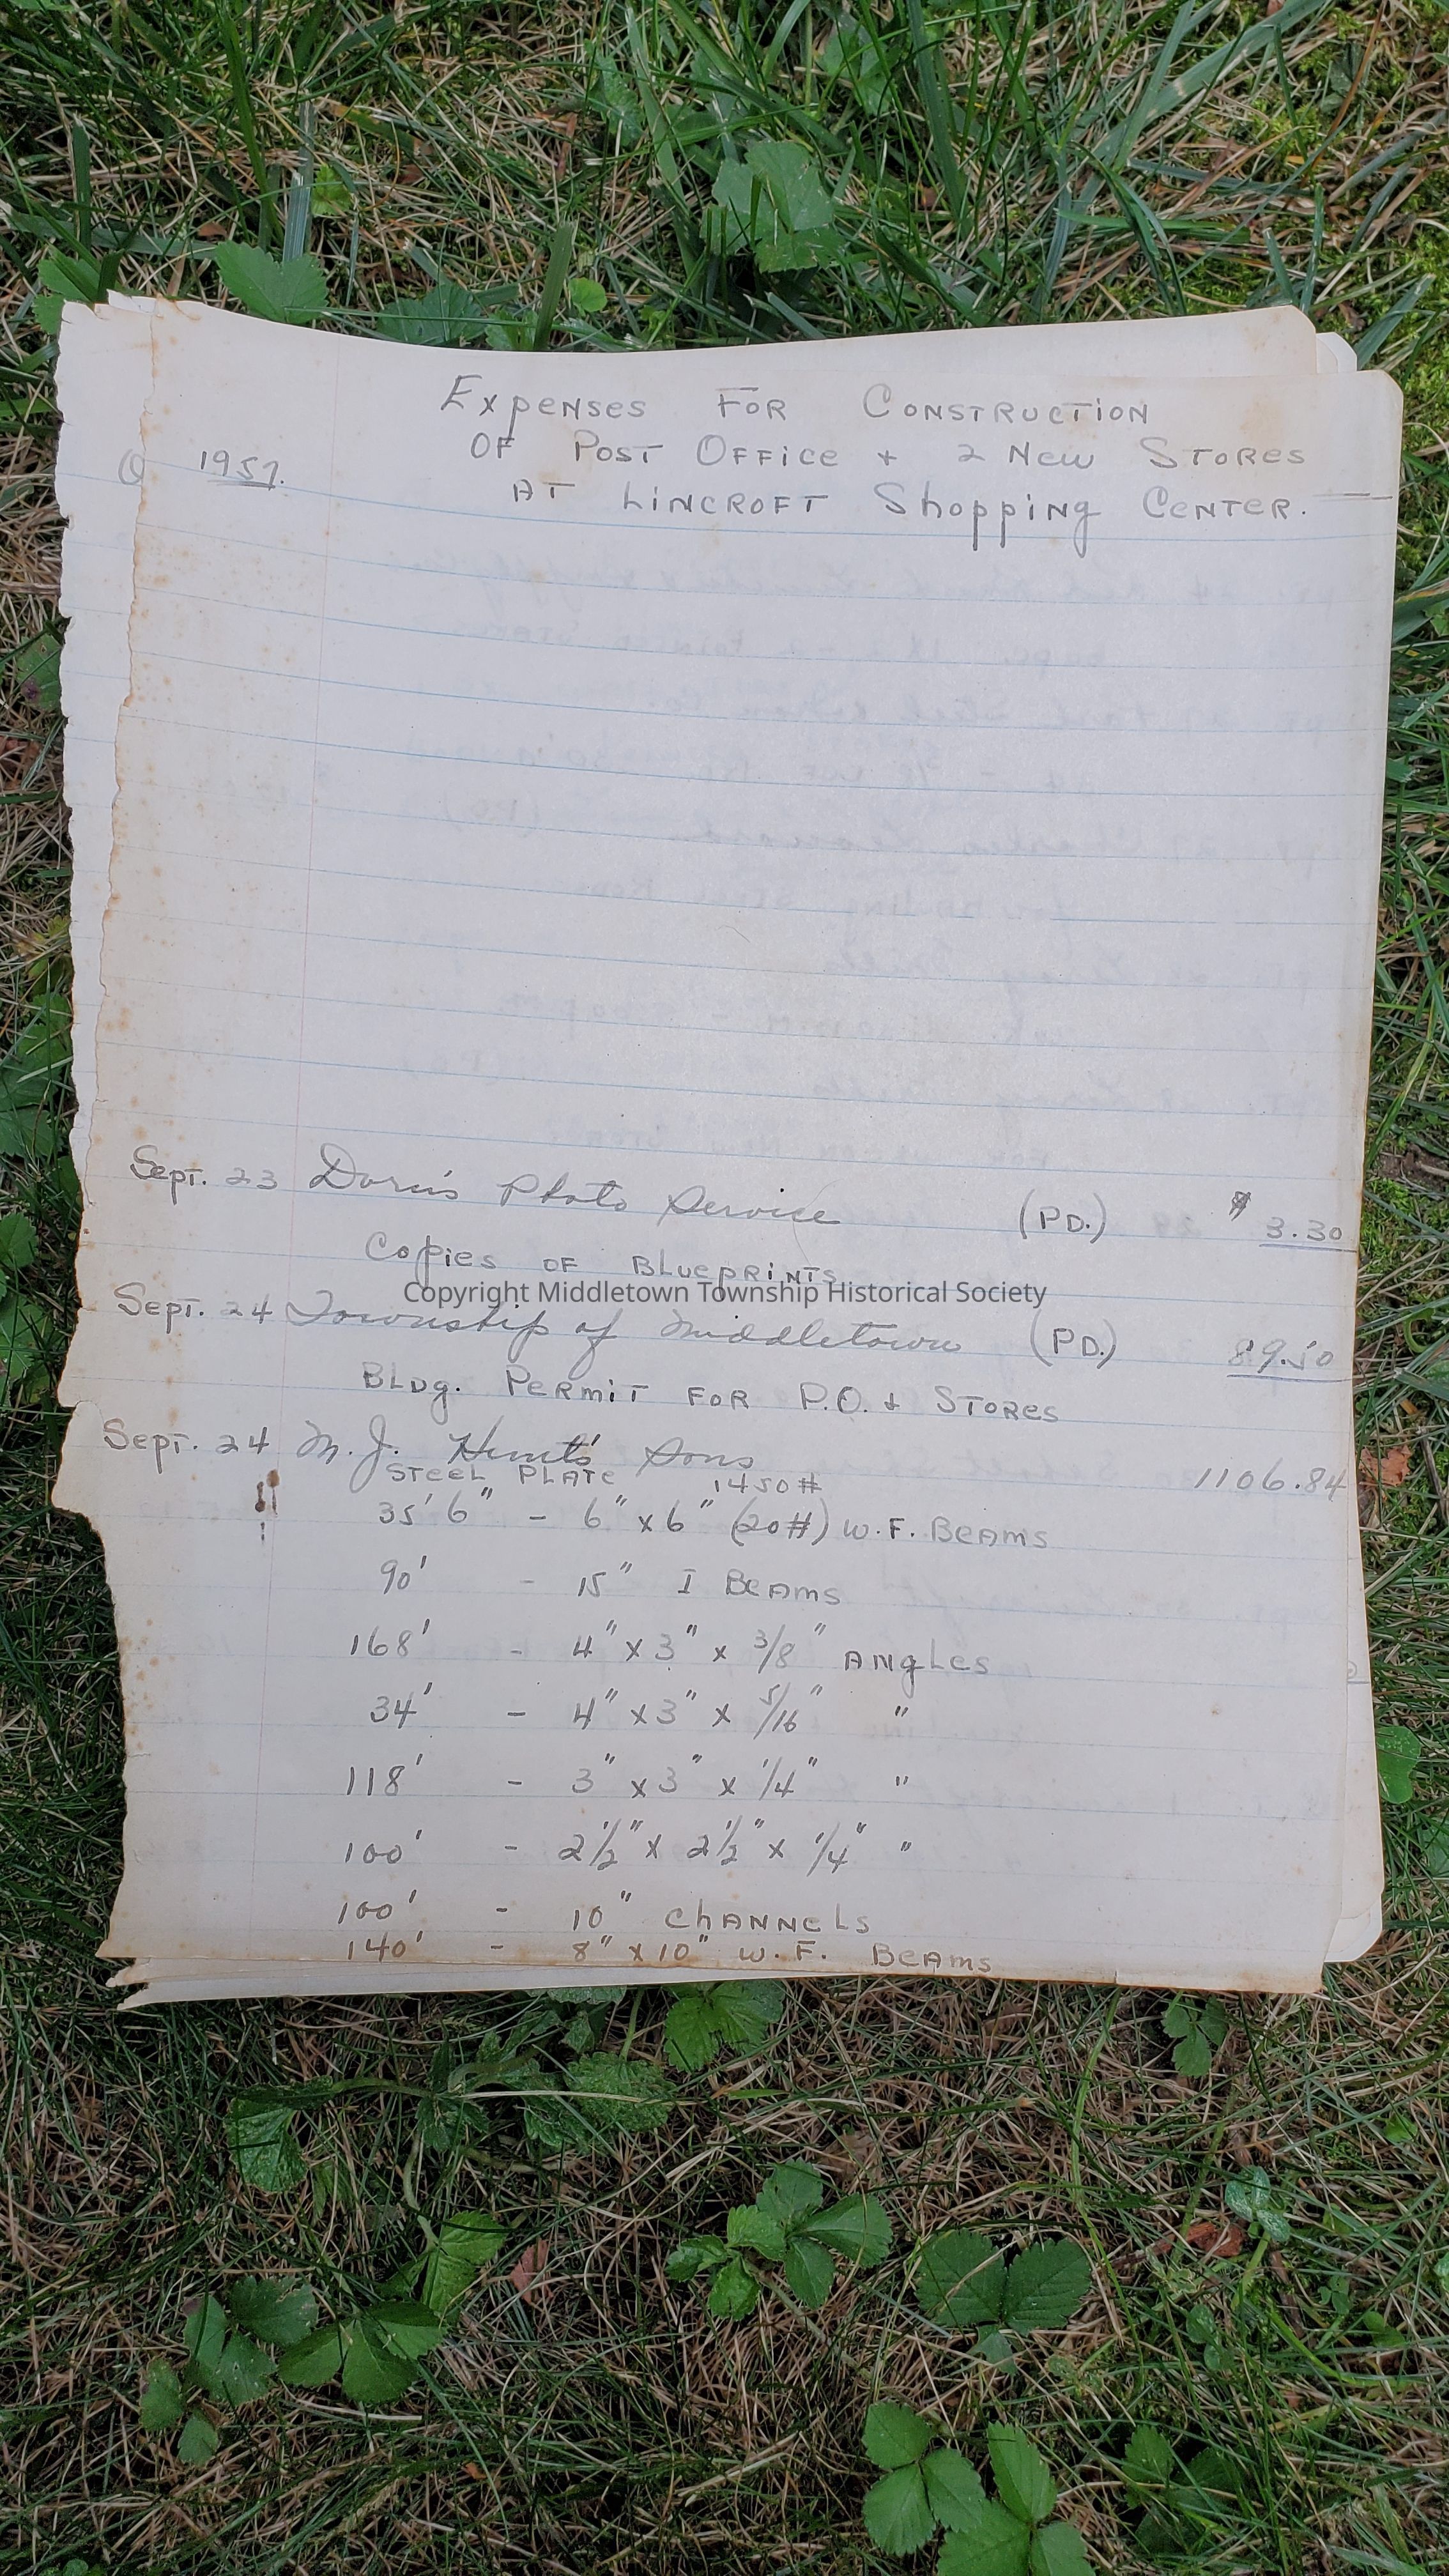 Expenses For Construction
1957. Of Post Office + 2 New Stores
At Lincroft Shopping Center.
Sept. 23 Dorn's Photo Service (PD.) $ 3.30
Copies of Blueprints
Copyright Middletown Township Historical Society
Sept. 24 Township of Middletown (PD.) 89.50
Bldg. Permit for P.O. + Stores
Sept. 24 M. J. Hunt's Sons 1106.84
Steel Plate 1450#
35' 6" - 6" x 6" (20#) W.F. Beams
90' - 15" I Beams
168' - 4" x 3" x 3/8" Angles
34' - 4" x 3" x 5/16" "
118' - 3" x 3" x 1/4" "
100' - 2 1/2" x 2 1/2" x 1/4" "
100' - 10" Channels
140' - 8" x 10" W.F. Beams